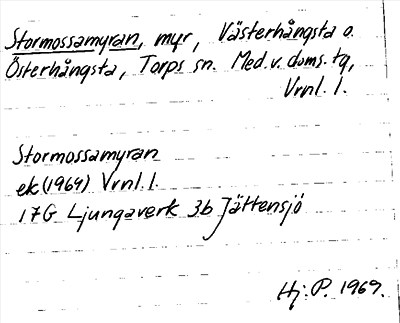 Stormossamyran, myr, Västerhångsta o.
Österhångsta, Torps sn. Med. v. doms. tg,
Vrnl. l.
Stormossamyran
ek (1964) Vrnl. l.
17G Ljungaverk 3b Jättensjö
Hj. P. 1969.